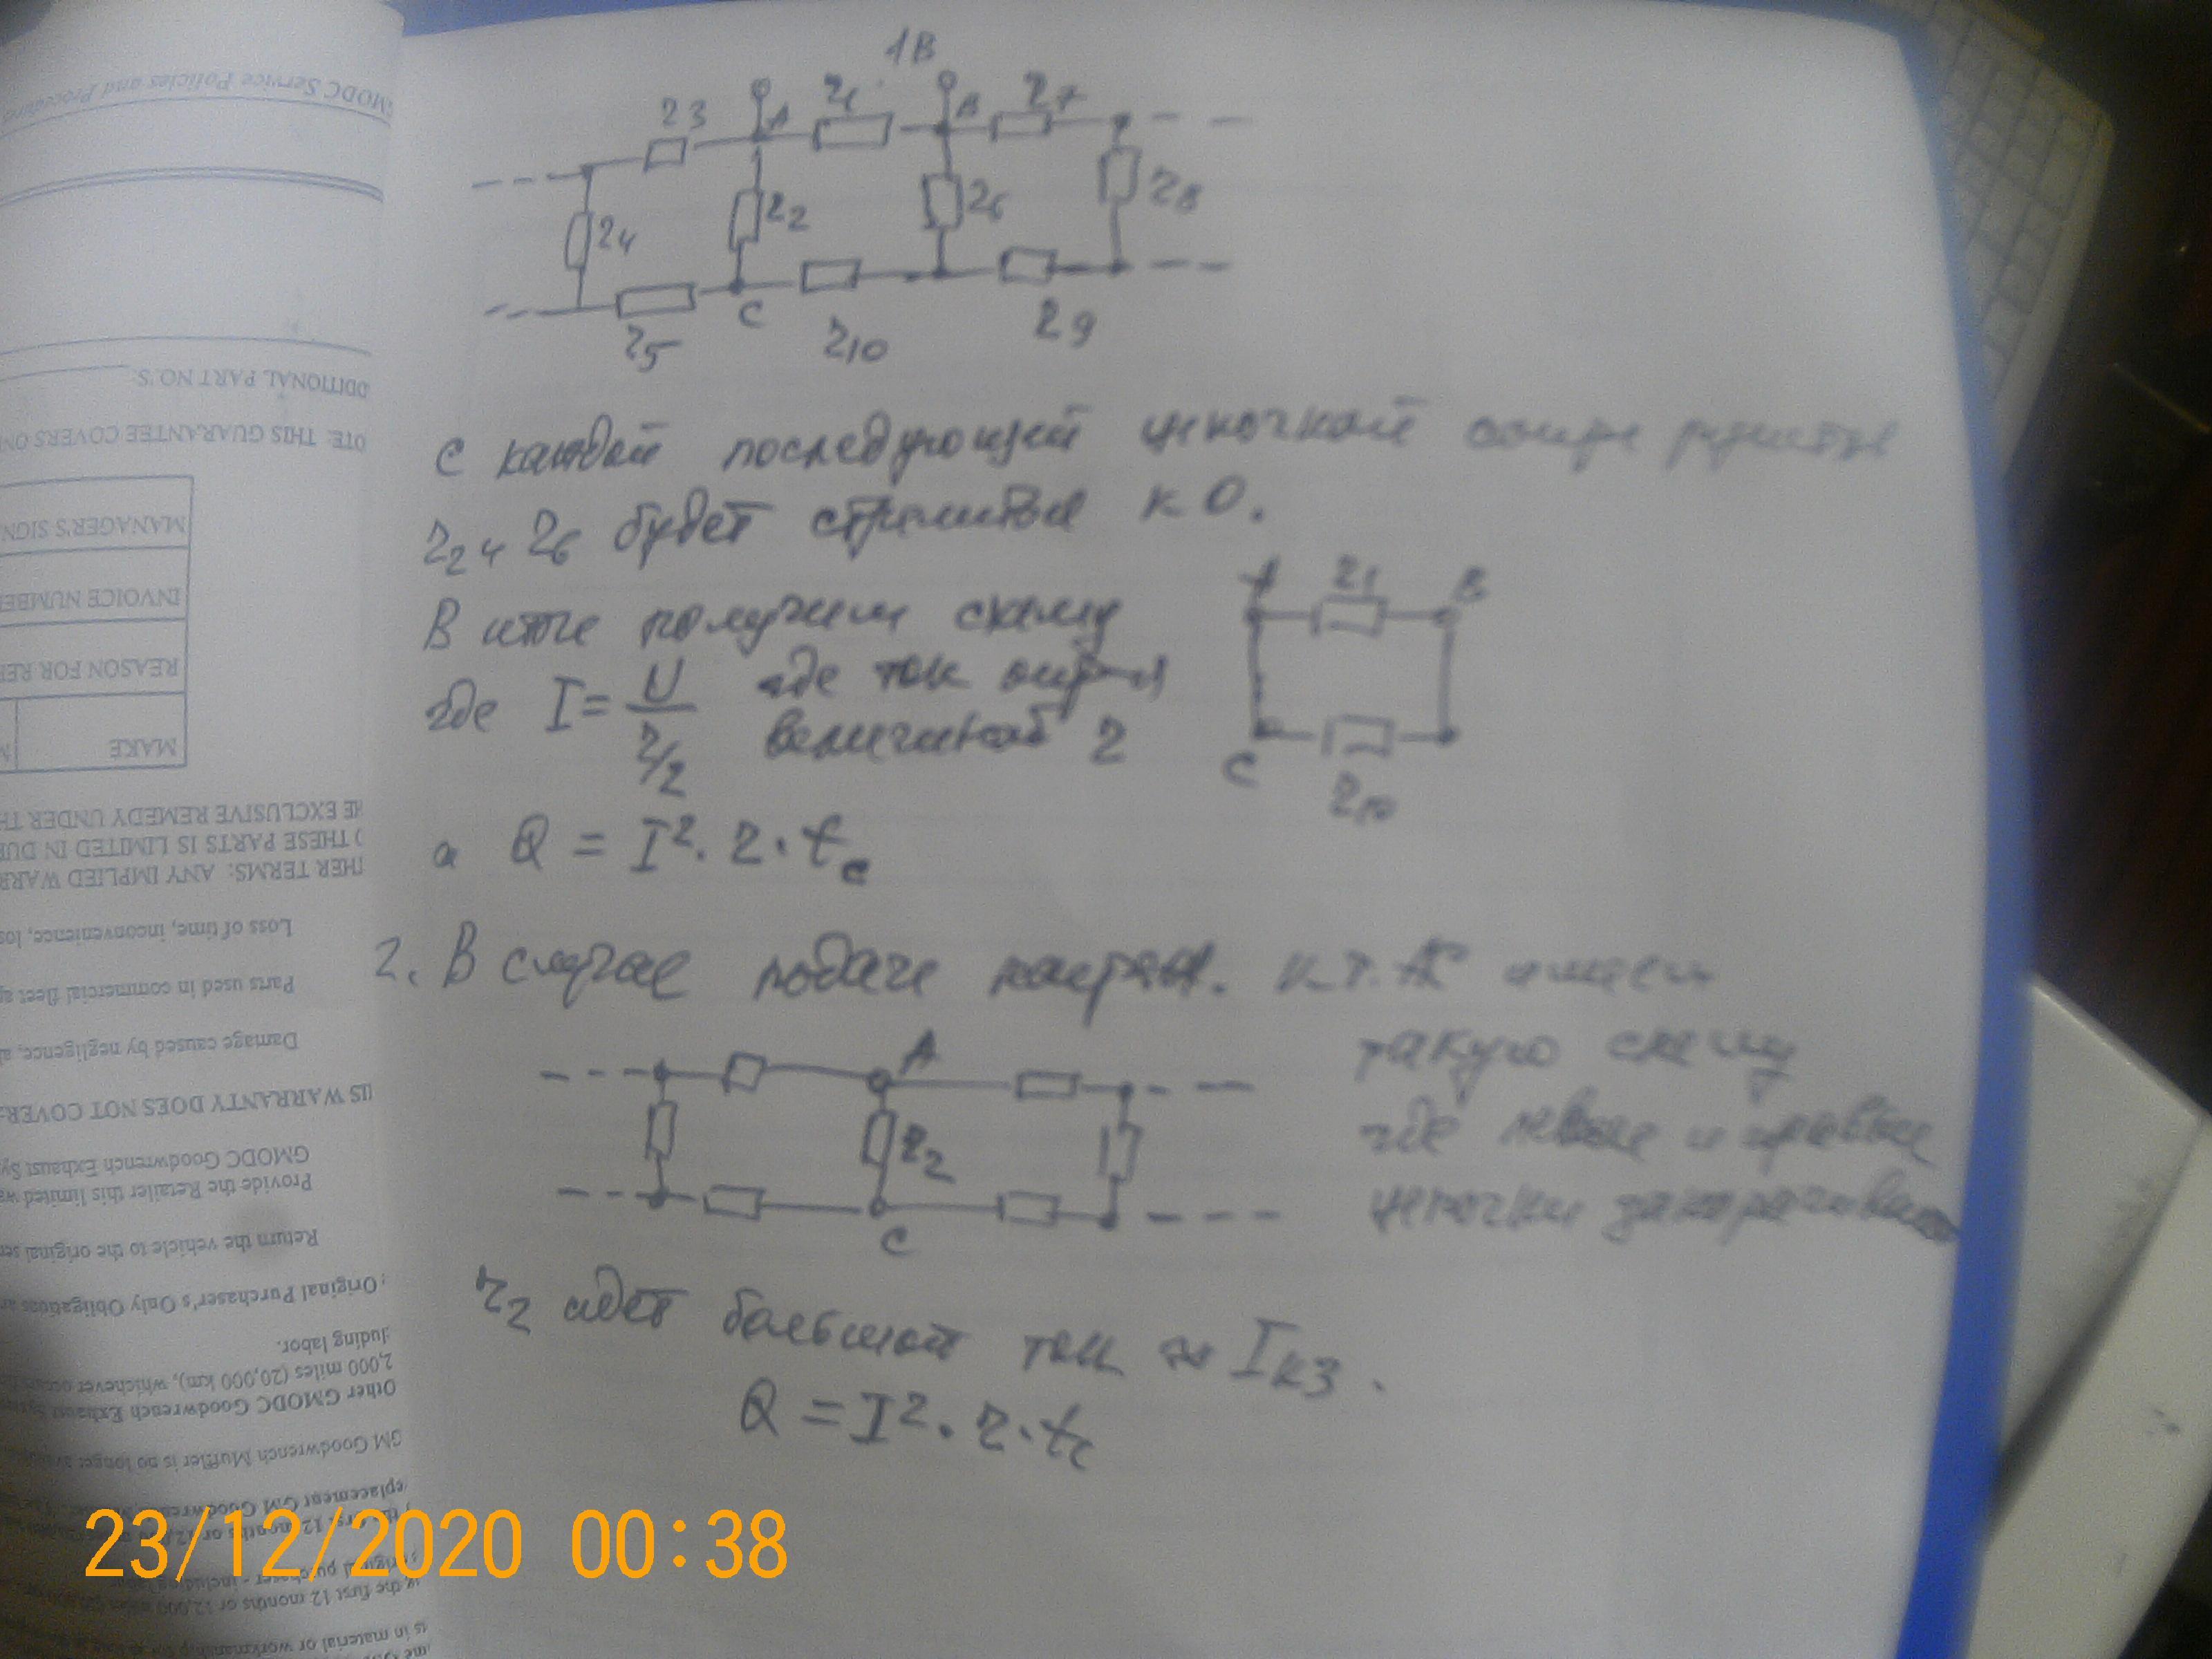 1В
A
B
r3
r1
r7
r4
r2
r6
r8
r5
C
r10
r9
с каждой последующей цепочкой
r2 и r6 будет стремиться к 0.
В итоге получим схему
где I = U / r/2 где ток
величиной r
A r1 B
C r10
а Q = I². r · tc
2. В случае подачи напряж. к т. AC имеем
такую схему
где левые и правые
цепочки закорачивают
A
r2
C
r2 идет большой ток ≈ Iкз.
Q = I² · r · tc
23/12/2020 00:38
GMODC Service Policies and
DDITIONAL PART NO.'S
OTE: THIS GUARANTEE COVERS
MANAGER'S SIGN
INVOICE NUMBER
REASON FOR REP
MAKE
HE EXCLUSIVE REMEDY UNDER TH
THESE PARTS IS LIMITED IN DUR
THER TERMS: ANY IMPLIED WARR
Loss of time, inconvenience,
Parts used in commercial fleet
Damage caused by negligence,
IS WARRANTY DOES NOT COVER:
GMODC Goodwrench Exhaust Sy
Provide the Retailer this limited wa
Return the vehicle to the original
Original Purchaser's Only Obligations
luding labor.
2,000 miles (20,000 km), whichever
Other GMODC Goodwrench Exhaust
GM Goodwrench Muffler is no longer
eplacement GM Goodwrench
the first 12 months or 12,000
is in material or workmanship